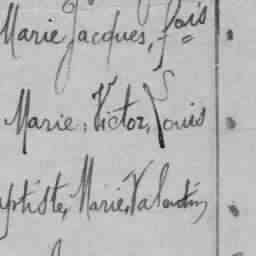 Marie Jacques, fois
Marie, Victor, Louis
aptiste, Marie, Valentin,